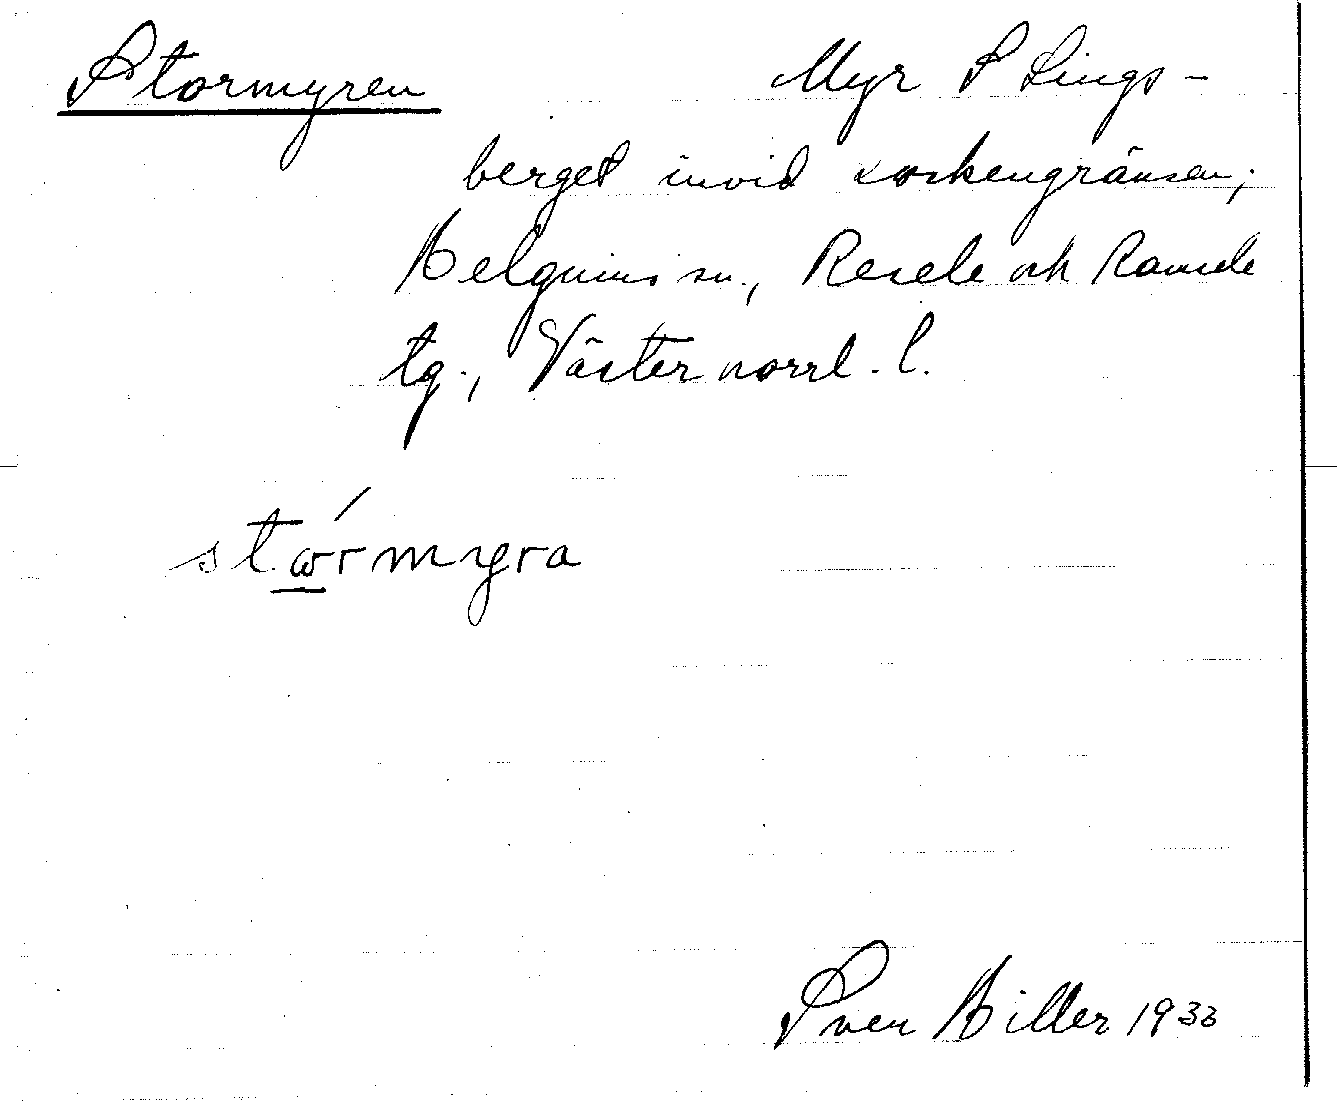 Stormyren Myr S Lings-
berget invid sockengränsen,
Helgums sn., Resele och Ramsele
tg., Västernorrl. l.
stɷ́rmyra
Sven Hiller 1933